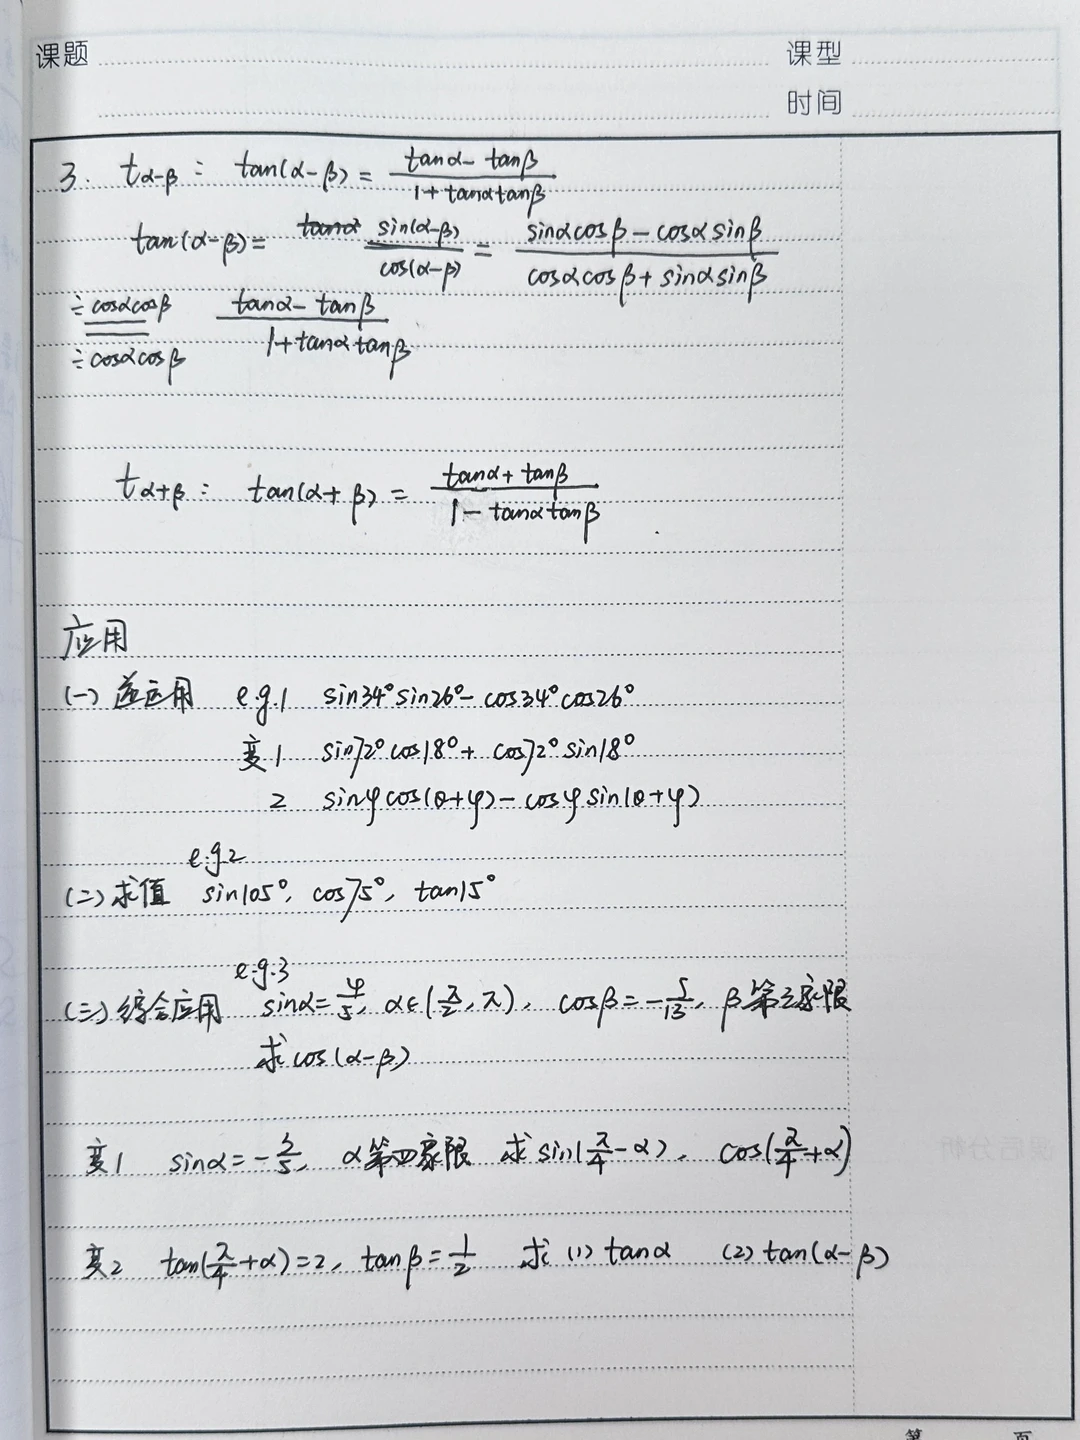 课题
课型
时间
3. tα-β: tan(α-β) = (tanα - tanβ)/(1 + tanαtanβ)
tan(α-β) = sin(α-β)/cos(α-β) = (sinαcosβ - cosαsinβ)/(cosαcosβ + sinαsinβ)
÷cosαcosβ
÷cosαcosβ
(tanα - tanβ)/(1 + tanαtanβ)
tα+β: tan(α+β) = (tanα + tanβ)/(1 - tanαtanβ)
应用
(一) 逆运用 e.g.1 sin34°sin26° - cos34°cos26°
变1 sin72°cos18° + cos72°sin18°
2 sinφcos(θ+φ) - cosφsin(θ+φ)
e.g.2
(二) 求值 sin105°, cos75°, tan15°
e.g.3
(三) 综合应用 sinα = 4/5, α∈(π/2, π), cosβ = -5/13, β第三象限
求cos(α-β)
变1 sinα = -3/5, α第四象限 求sin(π/4 - α), cos(π/4 + α)
变2 tan(π/4 + α) = 2, tanβ = 1/2 求 (1) tanα (2) tan(α-β)
课后分析
第 页